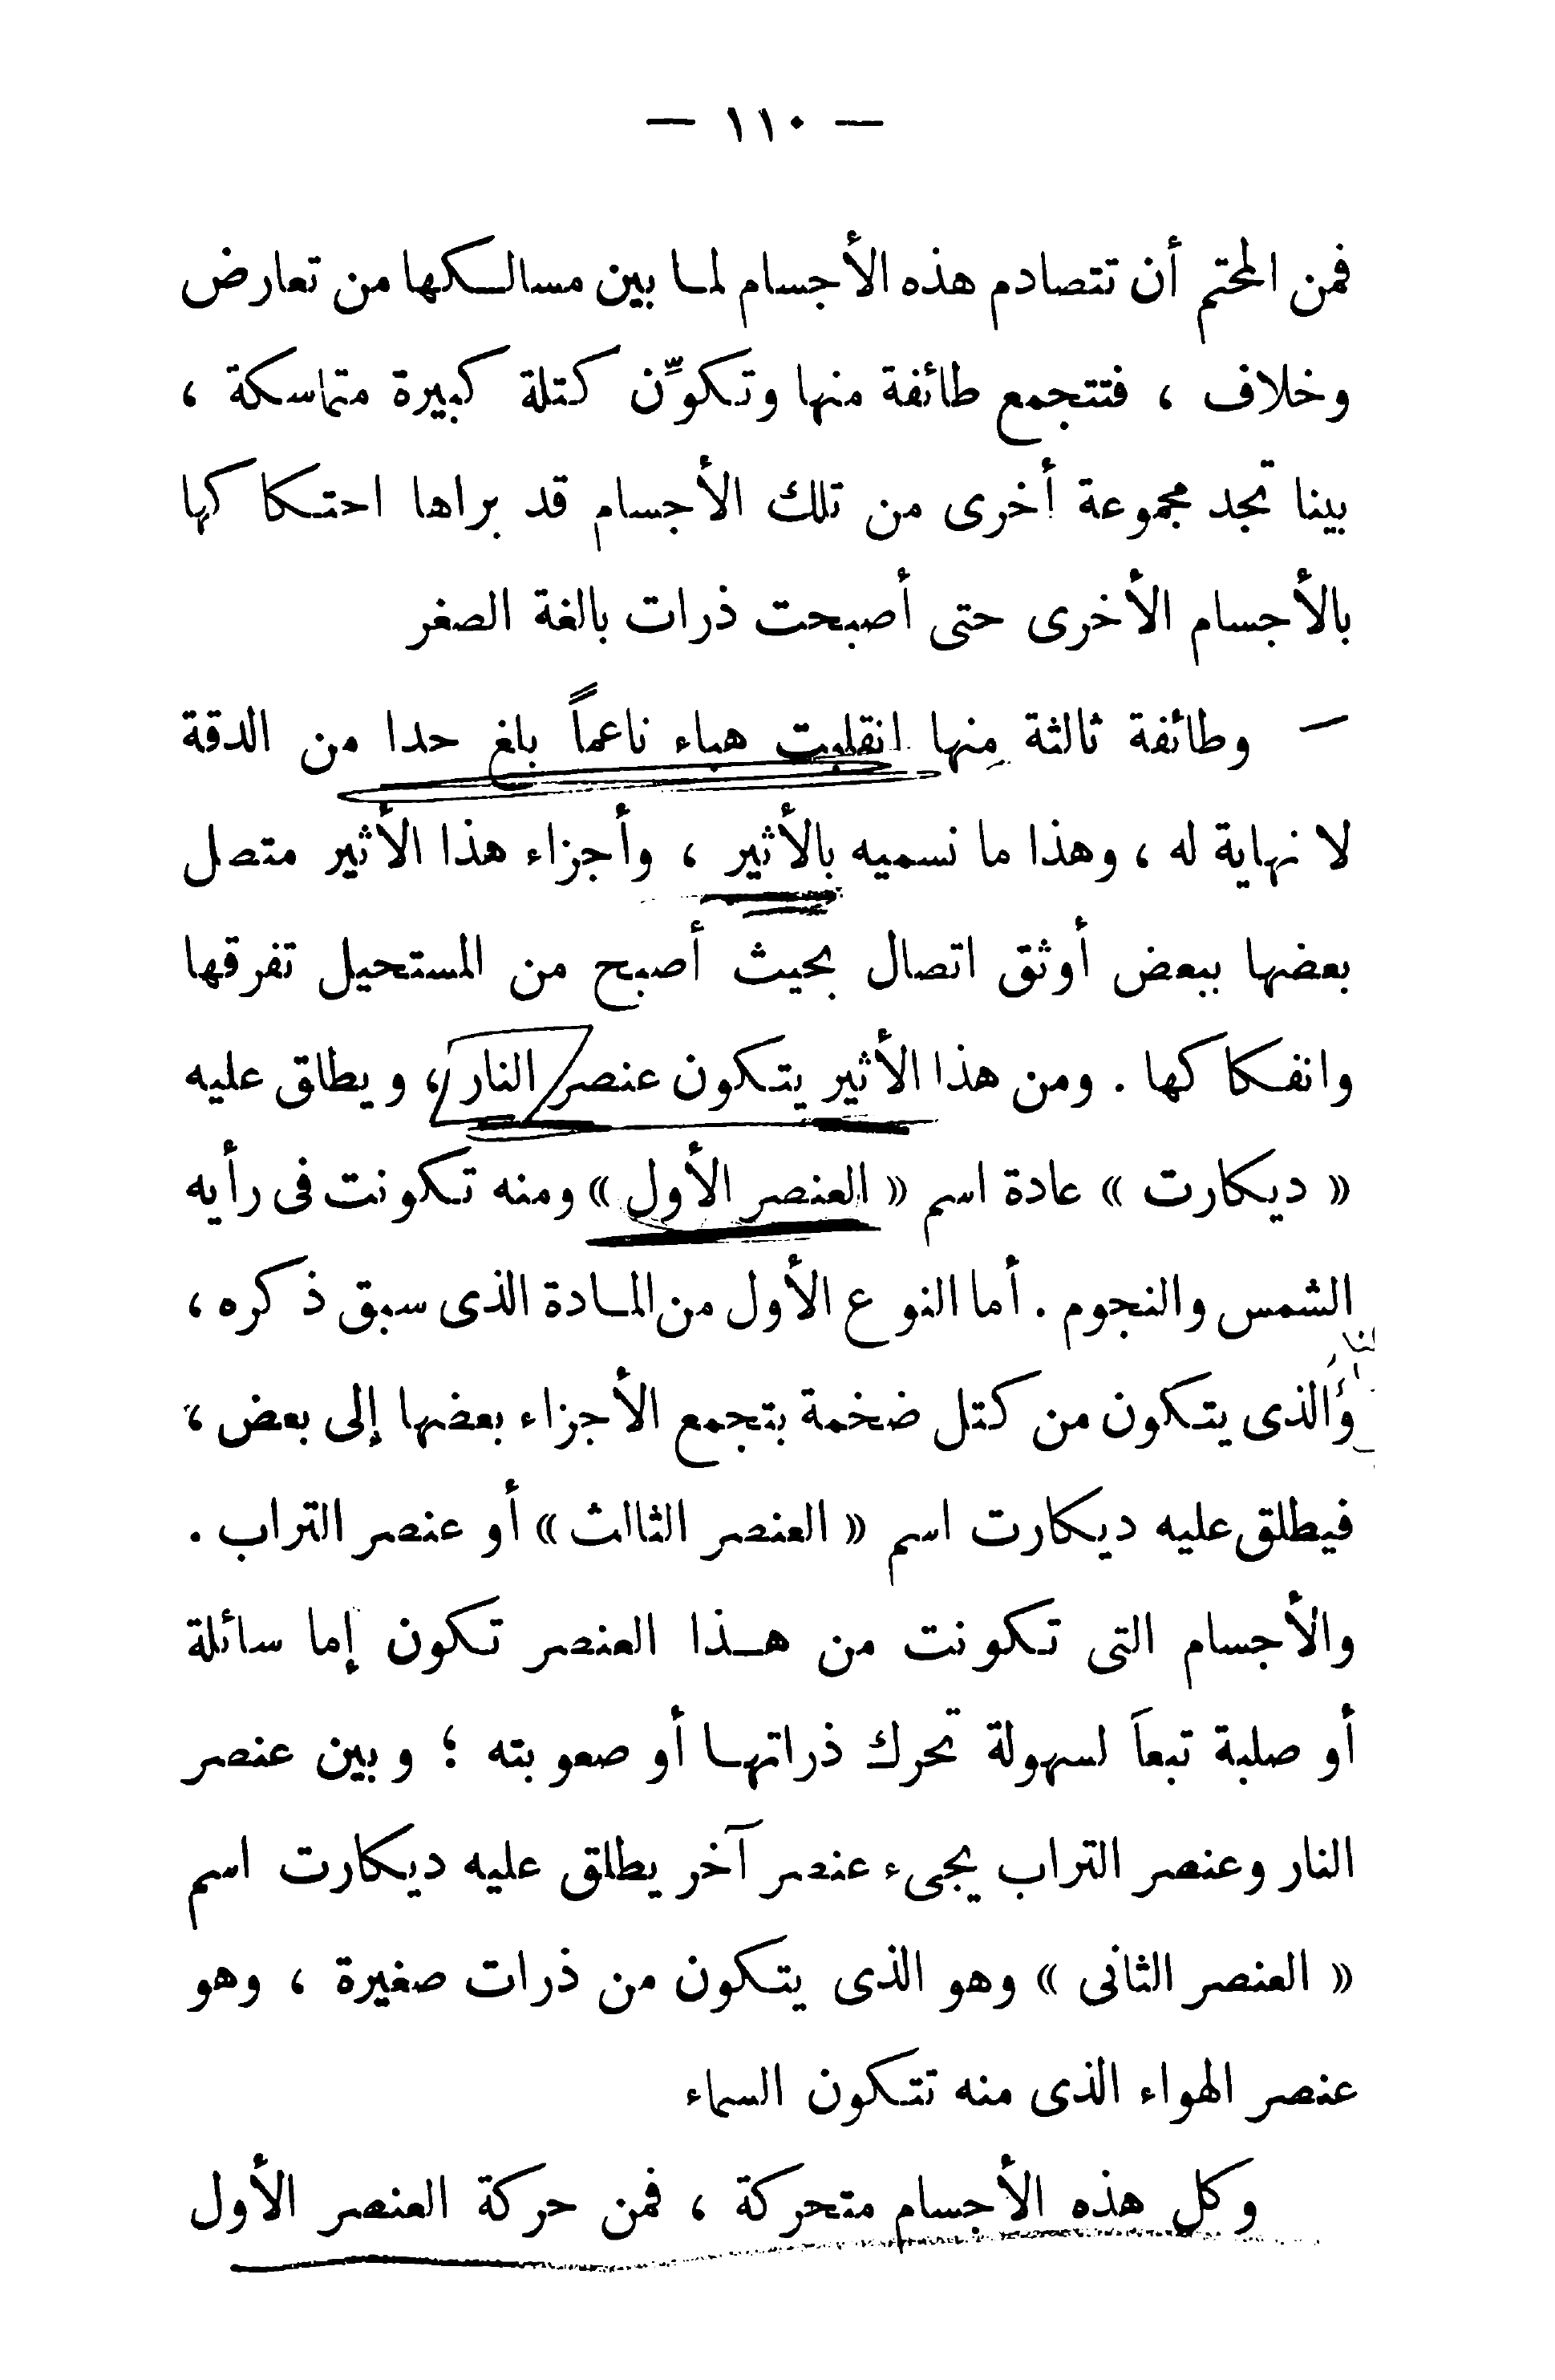 — ١١٠ —
فمن المحتم أن تتصادم هذه الأجسام لما بين مسالكها من تعارض
وخلاف ، فتتجمع طائفة منها وتكوّن كتلة كبيرة متماسكة ،
بينا تجد مجموعة أخرى من تلك الأجسام قد براها احتكاكها
بالأجسام الأخرى حتى أصبحت ذرات بالغة الصغر
— وطائفة ثالثة منها انقلبت هباء ناعماً بلغ حدا من الدقة
لا نهاية له ، وهذا ما نسميه بالأثير ، وأجزاء هذا الأثير متصل
بعضها ببعض أوثق اتصال بحيث أصبح من المستحيل تفرقها
وانفكاكها . ومن هذا الأثير يتكون عنصر النار ، ويطلق عليه
« ديكارت » عادة اسم « العنصر الأول » ومنه تكونت فى رأيه
الشمس والنجوم . أما النوع الأول من المادة الذى سبق ذكره ،
والذى يتكون من كتل ضخمة بتجمع الأجزاء بعضها إلى بعض ،
فيطلق عليه ديكارت اسم « العنصر الثالث » أو عنصر التراب .
والأجسام التى تكونت من هذا العنصر تكون إما سائلة
أو صلبة تبعاً لسهولة تحرك ذراتها أو صعوبته ؛ وبين عنصر
النار وعنصر التراب يجىء عنصر آخر يطلق عليه ديكارت اسم
« العنصر الثانى » وهو الذى يتكون من ذرات صغيرة ، وهو
عنصر الهواء الذى منه تتكون السماء
وكل هذه الأجسام متحركة ، فمن حركة العنصر الأول